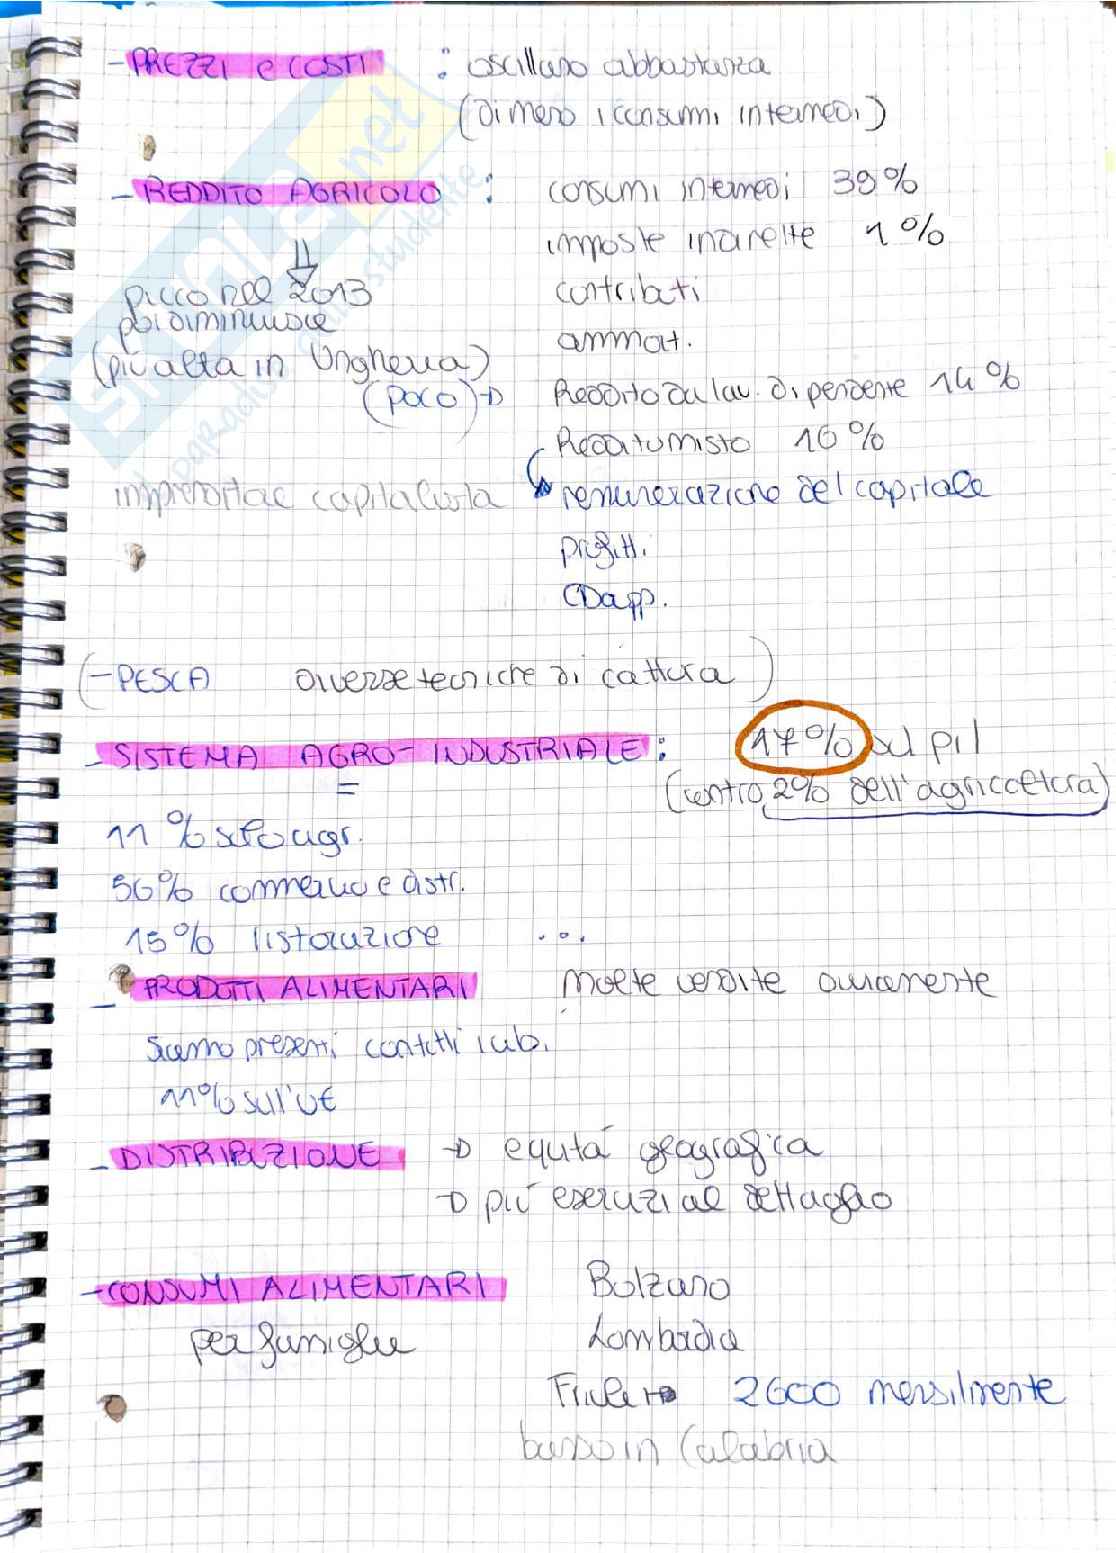 - PREZZI e COSTI : oscillano abbastanza
(di meno i consumi intermedi)
- REDDITO AGRICOLO : consumi intermedi 39%
imposte indirette 1%
picco nel 2013 contributi
poi diminuisce ammort.
(più alta in Ungheria)
(poco) → Reddito da lav. dipendente 14%
Reddito misto 16%
imprenditore capitalista remunerazione del capitale
profitti
(-PESCA diverse tecniche di cattura)
- SISTEMA AGRO-INDUSTRIALE : 17% sul pil
= (contro 2% dell'agricoltura)
11% solo agr.
56% commercio e distr.
15% ristorazione ...
- PRODOTTI ALIMENTARI molte vendite ovviamente
Siamo presenti
11% sull'UE
- DISTRIBUZIONE → equità geografica
→ più esercizi al dettaglio
- CONSUMI ALIMENTARI Bolzano
per famiglie Lombardia
Friuli → 2600 mensilmente
basso in Calabria
skuola.net